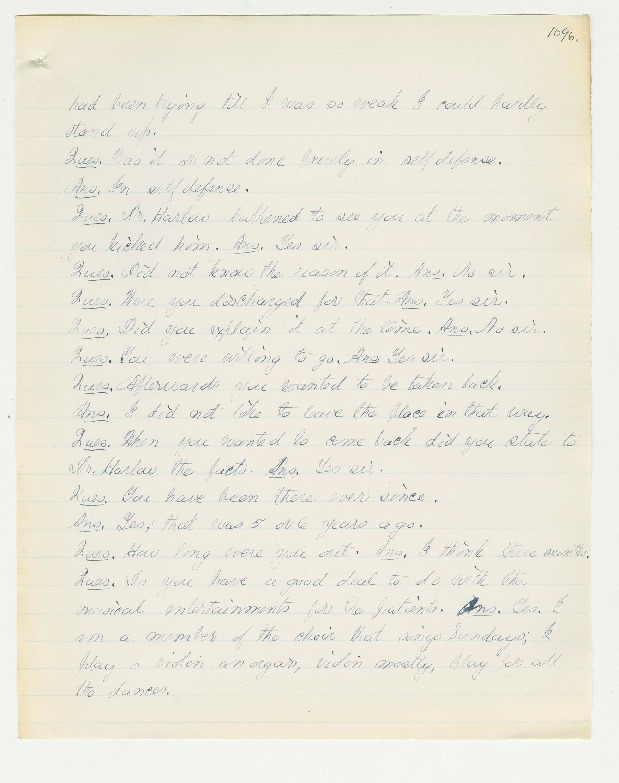 1096.
had been trying till I was so weak I could hardly
stand up.
Ques. Was it not done purely in self defense.
Ans. In self defense.
Ques. Dr. Harlow happened to see you at the moment
you kicked him. Ans. Yes sir.
Ques. Did not know the reason of it. Ans. No sir.
Ques. Were you discharged for that. Ans. Yes sir.
Ques. Did you explain it at the time. Ans. No sir.
Ques. You were willing to go. Ans Yes sir.
Ques. Afterwards you wanted to be taken back.
Ans. I did not like to leave the place in that way.
Ques. When you wanted to come back did you state to
Dr. Harlow the facts. Ans. Yes sir.
Ques. You have been there ever since.
Ans. Yes; that was 5 or 6 years ago.
Ques. How long were you out. Ans. I think three months.
Ques. Do you have a good deal to do with the
musical entertainments for the patients. Ans. Yes. I
am a member of the choir that sings Sundays; I
play a violin an organ, violin mostly, play for all
the dances.